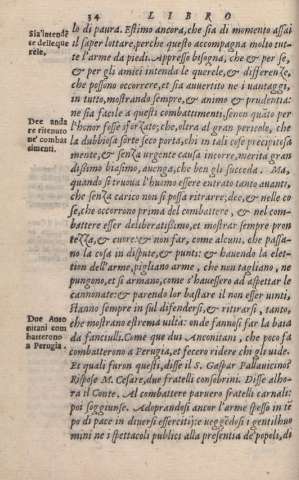 34 LIBRO
lo di paura. Estimo ancora, che sia di momento assai
il saper lottare, perche questo accompagna molto tut-
te l'arme da piedi. Appresso bisogna, che & per se,
& per gli amici intenda le querele, & differenze,
che possono occorrere, et sia auuertito ne i uantaggi,
in tutto, mostrando sempre, & animo & prudentia:
ne sia facile a questi combattimenti, senon quãto per
l'honor fosse sforzato; che, oltra al gran pericolo, che
la dubbiosa sorte seco porta, chi in tali cose precipitosa
mente, & senza urgente causa incorre, merita gran
dissimo biasimo, auenga, che ben gli succeda. Ma,
quando si truoua l'huomo essere entrato tanto auanti,
che senza carico non si possa ritrarre; dee, & nelle co
se, che occorrono prima del combattere, & nel com-
battere esser deliberatissimo, et mostrar sempre pron
tezza, & cuore: & non far, come alcuni, che passa-
no la cosa in dispute, & punti: & hauendo la elet-
tion dell'arme, pigliano arme, che non tagliano, ne
pungono, et si armano, come s'hauessero ad aspettar le
cannonate: & parendo lor bastare il non esser uinti,
stanno sempre in sul difendersi, & ritirarsi, tanto,
che mostrano estrema uiltà: onde fannosi far la baia
da fanciulli. Come que dui Anconitani, che poco fa
combatterono a Perugia, et fecero ridere chi gli uide.
Et quali furon questi, disse il S. Gaspar Pallauicino?
Rispose M. Cesare, due fratelli consobrini. Disse alho-
ra il Conte. Al combattere paruero fratelli carnali:
poi soggiunse. Adoprandosi ancor l'arme spesso in tẽ
po di pace in diuersi essercitij: ueggẽdosi i gentilhuo
mini ne i spettacoli publici alla presentia de' popoli, di
Sia'ntendẽ
te delle que
rele.
Dee anda
re ritenuto
ne' combat
timenti.
Due Anco
nitani com
batterono
a Perugia.